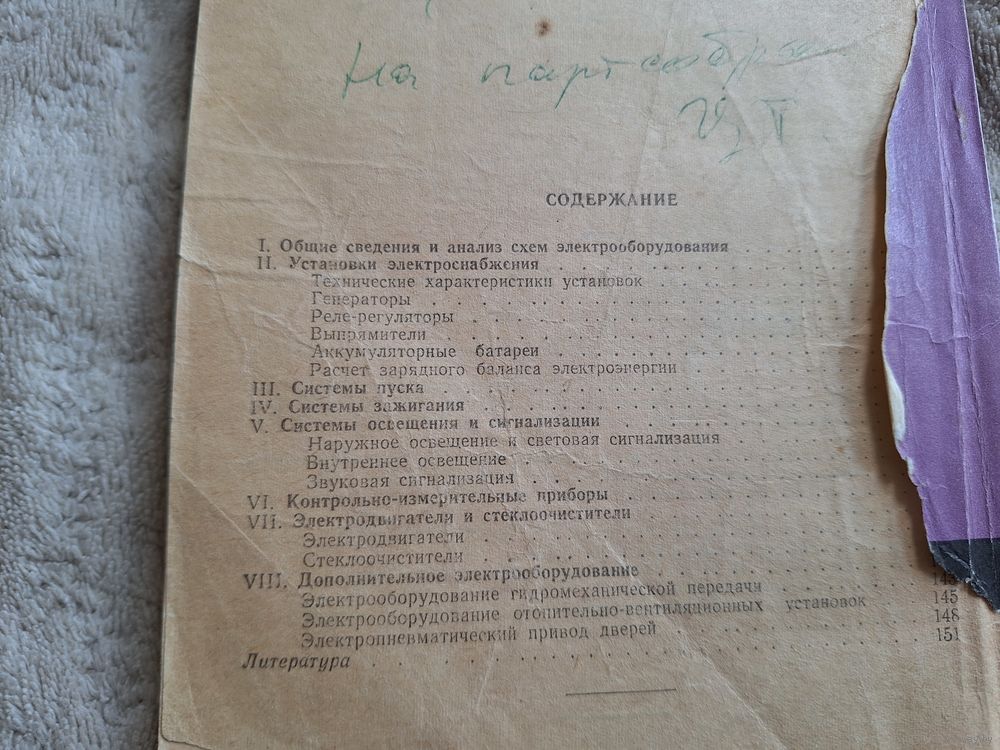 На партсобра
СОДЕРЖАНИЕ
I. Общие сведения и анализ схем электрооборудования
II. Установки электроснабжения
Технические характеристики установок
Генераторы
Реле-регуляторы
Выпрямители
Аккумуляторные батареи
Расчет зарядного баланса электроэнергии
III. Системы пуска
IV. Системы зажигания
V. Системы освещения и сигнализации
Наружное освещение и световая сигнализация
Внутреннее освещение
Звуковая сигнализация
VI. Контрольно-измерительные приборы
VII. Электродвигатели и стеклоочистители
Электродвигатели
Стеклоочистители
VIII. Дополнительное электрооборудование 143
Электрооборудование гидромеханической передачи 145
Электрооборудование отопительно-вентиляционных установок 148
Электропневматический привод дверей 151
Литература